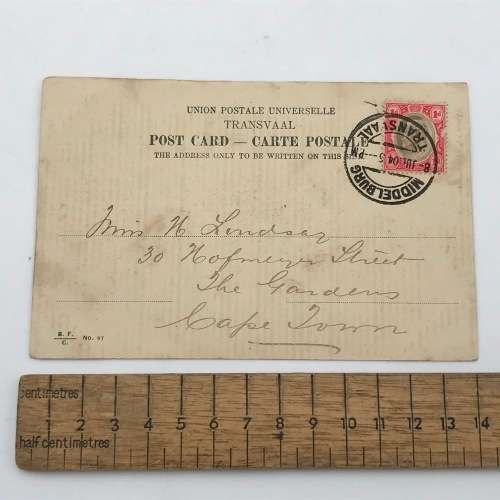 UNION POSTALE UNIVERSELLE
TRANSVAAL
POST CARD — CARTE POSTALE
THE ADDRESS ONLY TO BE WRITTEN ON THIS SIDE
MIDDELBURG
TRANSVAAL
8 JU 04 5 PM
Miss H Lindsay
30 Hofmeyer Street
The Gardens
Cape Town
S. F.
C.
No. 97
centimetres
1 2 3 4 5 6 7 8 9 10 11 12 13 14
half centimetres